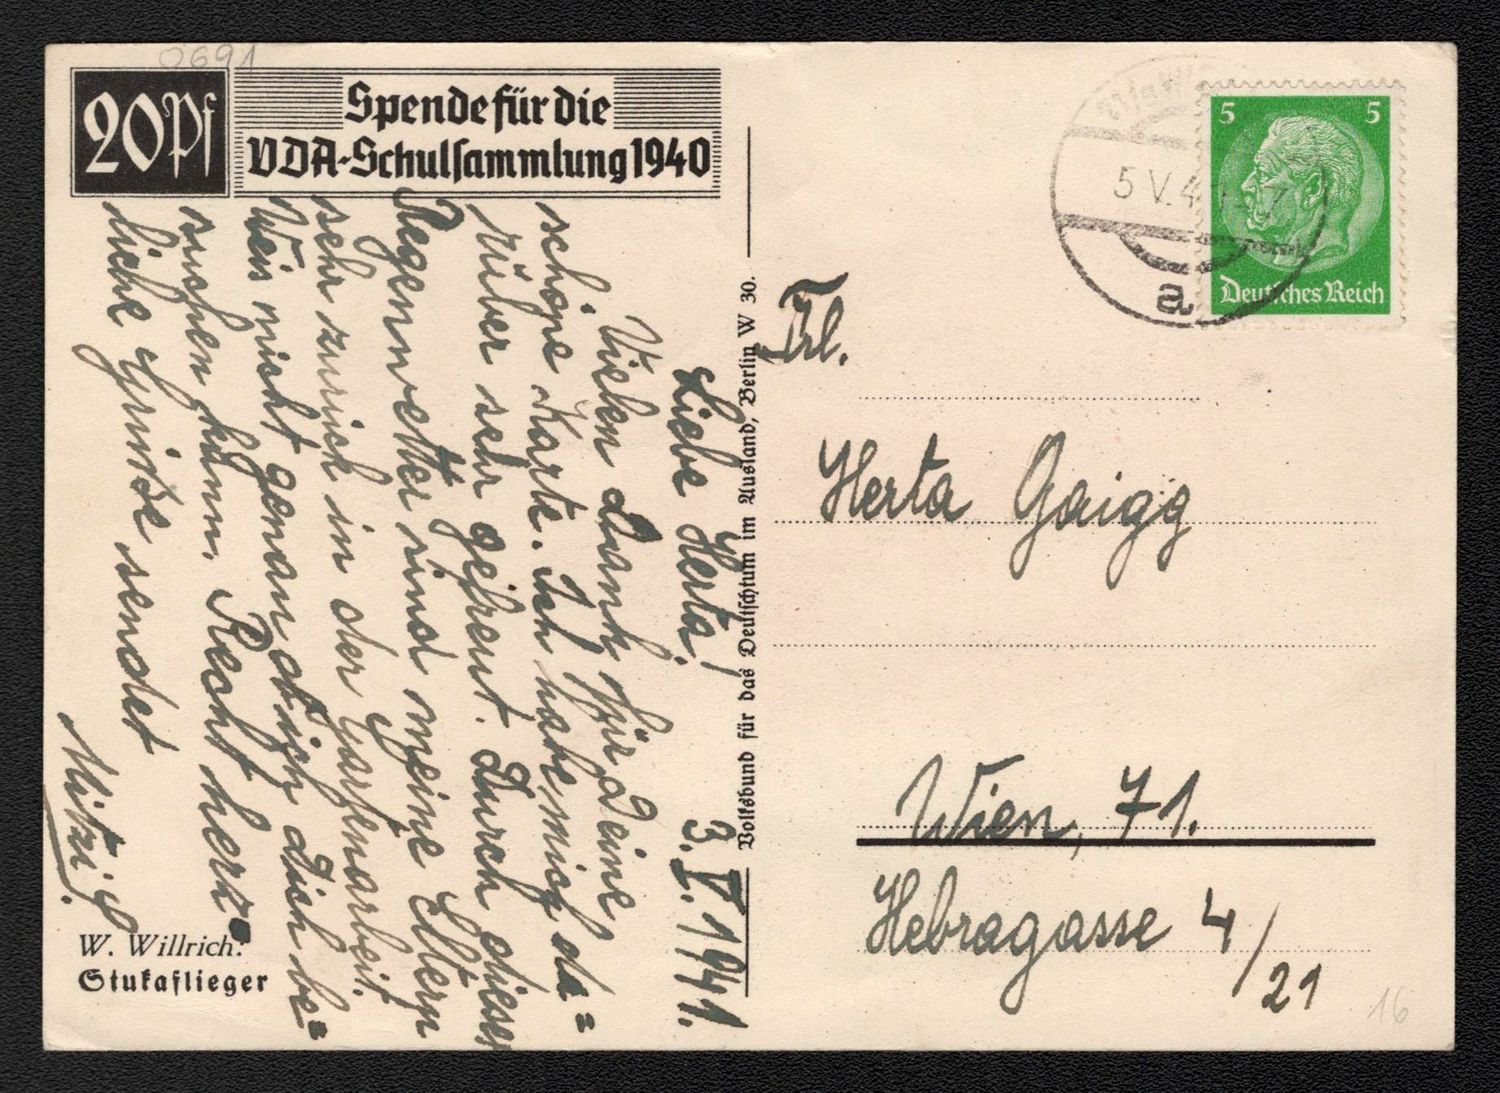 0691
20Pf
Spende für die
VDA-Schulsammlung 1940
3.V.1941.
Liebe Herta!
Vielen Dank für Deine
schöne Karte. Ich habe mich da=
rüber sehr gefreut. Durch dieses
Regenwetter sind meine Eltern
sehr zurück in der Gartenarbeit.
Weis nicht genau ob ich Dich be=
suchen kann. Recht herz=
liche Grüße sendet
Mitzi G.
W. Willrich:
Stukaflieger
Volksbund für das Deutschtum im Ausland, Berlin W 30.
5 V. 4
a
5 5
Deutsches Reich
Frl.
Herta Gaigg
Wien, 71.
Hebragasse 4/21
16